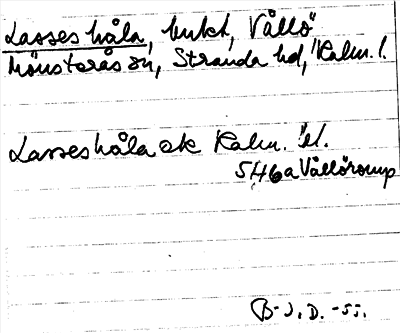 Lasses håla, bukt, Vållö
Mönsterås sn, Stranda hd, Kalm. l.
Lasses håla ek Kalm. l.
5H6a Vållöromp
B-J. D. -55.